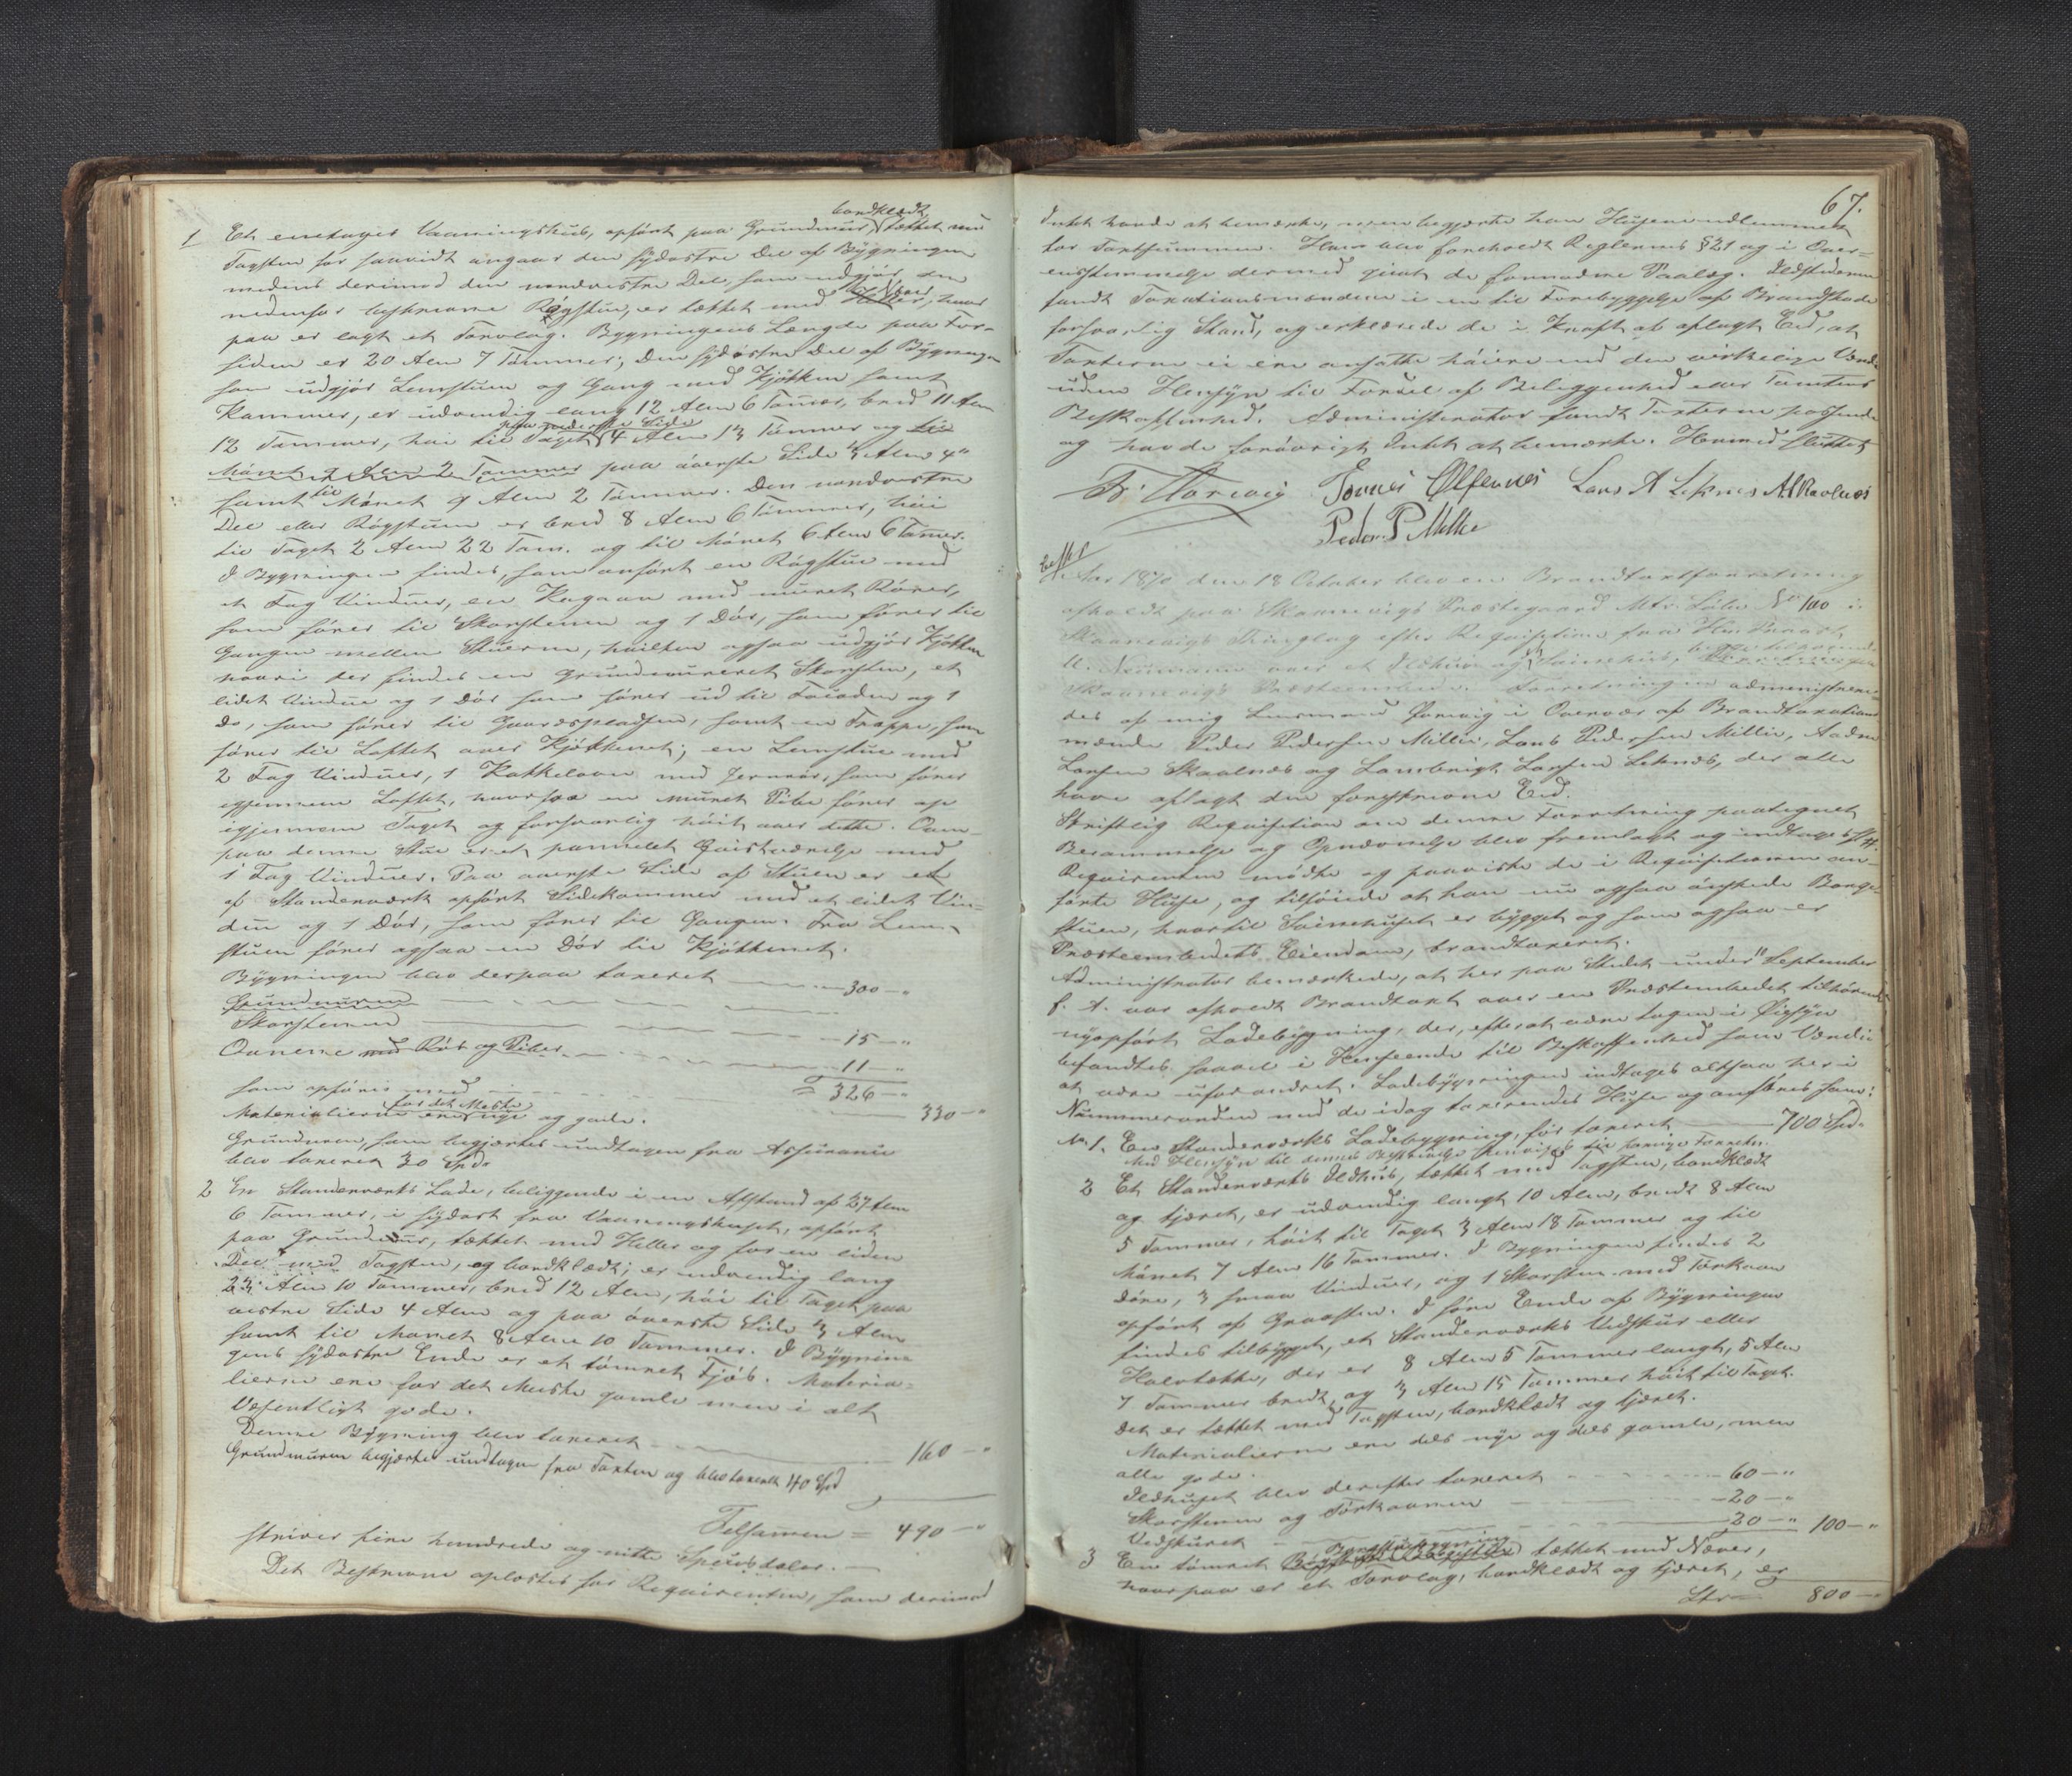 1 Et enetages Vaaningshus, opført paa Grundmuur, bordklædt, tækket med
Tagsten for saavidt angaar den sydøstre Del af Bygningen
medens derimod den nordvestre Del, som udgjør den
nedenfor beskrevne Røgstue, er tækket med Næver, hvor
paa er lagt et Torvlag. Bygningens Længde paa For-
siden er 20 Alen 7 Tommer; den sydøstre Del af Bygningen
som udgjør Lemstuen og Gang med Kjøkken samt
Kammer, er udvendig lang 12 Alen 6 Tommer, bred 11 Alen
12 Tommer, høi til Taget paa nederste Side 4 Alen 13 Tommer og til
Mønet 7 Alen 2 Tommer paa øverste Side 3 Alen 4"
samt til Mønet 7 Alen 2 Tommer. Den nordvestre
Del eller Røgstuen er bred 8 Alen 6 Tommer, høi
til Taget 2 Alen 22 Tom. og til Mønet 6 Alen 6 Tommer.
I Bygningen findes, som anført en Røgstue med
et Fag Vinduer, en Kagoan med muret Rører,
som fører til Skorstenen og 1 Dør, som fører til
Gangen mellem Stuerne, hvilken ogsaa udgjør Kjøkken
hvori der findes en Grundmuret Skorsten, et
lidet Vindue og 1 Dør som fører ud til Facaden og 1
do, som fører til Gaardspladsen, samt en Trappe, som
fører til Loftet over Kjøkkenet; en Lemstue med
2 Fag Vinduer, 1 Kakkelovn med Jernrør, som fører
igjennem Loftet, hvorfra en muret Pibe fører op
igjennem Taget og forsvarlig høit over dette. Oven-
paa denne Stue er et pannelet Qvistværelse med
1 Fag Vinduer. Paa øverste Side af Stuen er et
af Standerværk opført Sidekammer med et lidet Vin-
due og 1 Dør, som fører til Gangen. Fra Lem-
stuen fører ogsaa en Dør til Kjøkkenet.
Bygningen blev derpaa taxeret 300 - "
Grundmuren
Skorstenen 15 - "
Ovnene med Rør og Piber 11 - "
= 326 - "
som opføres med 330 - "
Materialierne ere for det Meste nye og gode.
Grundmuren, som begjæres undtagen fra Assurance
blev taxeret 30 Spd.
2 En Standerværks Lade, beliggende i en Afstand af 27 Alen
6 Tommer, i sydost fra Vaaningshuset, opført
paa Grundmur, tækket med Heller og for en liden
Deel med Tagsten, og bordklædt; er udvendig lang
23 Alen 10 Tommer, bred 12 Alen, høi til Taget paa
vestre Side 4 Alen og paa øverste Side 3 Alen
samt til Mønet 8 Alen 10 Tommer. I Bygnin-
gens sydøstre Ende er et tømret Fjøs. Materia-
lierne ere for det Meste gamle men i alt
Væsentligt gode.
Denne Bygning blev taxeret 160 - "
Grundmuren begjæres undtagen fra Taxten og blev taxeret 40 Spd
Tilsammen = 490 - "
skriver fire hundrede og nitti Speciesdaler.
Det Beskrevne oplæstes for Requirenten, som derimod
67.
Intet havde at bemærke, men begjærte han Husene indlemmet
for Taxtsummen. Ham blev foreholdt Reglernes § 21 og i Over-
ensstemmelse dermed givet de fornødne Paalæg. Ildstederne
fandt Taxationsmændene i en til Forebyggelse af Brandskade
forsvarlig Stand, og erklærede de i Kraft af aflagt Eed, at
Taxterne ei ere ansatte høiere end den virkelige Værdi
uden Hensyn til Fordel af Beliggenhed eller Tomtens
Beskaffenhed. Administrator fandt Taxterne passende
og havde forøvrigt Intet at bemærke. Hermed sluttet
Tønnes Ølfernes Lars A Leknes
Peder P Milke
Aar 1870 den 18 October blev en Brandtaxtforretning
afholdt paa Skaanevigs Præstegaard Mtr. Løbe No 100 i
Skaanevigs Thinglag efter Requisition fra Hr. Provst
U. Neumann over et Ildhus og
Skaanevigs Præsteembede. Forretningen administrere-
des af mig Lensmand i Overvær af Brandtaxations
mændene Peder Pedersen Millie, Lars Pedersen Millie, Aadne
Larsen Skaalnæs og Lambrigt Larsen Leknæs, der alle
have aflagt den foreskrevne Eed.
Skriftlig Requisition om denne Forretning paategnet
Berammelse og Opnævnelse blev fremlagt og indtages
Requirenten mødte og paaviste de i Requisitionen an-
førte Huse, og tilføiede at han nu ogsaa ønskede Borge
stuen, hvortil Svinehuset er bygget og som ogsaa er
Præsteembedets Eiendom, brandtaxeret.
Administrator bemærkede, at her paa Stedet under " September
f. A. var afholdt Brandtaxt over en Præsteembedet tilhørende
nyopført Ladebygning, der, efter at være tagen i Øiesyn
befandtes saavel i Henseende til Beskaffenhed som Værdie
at være uforandret. Ladebygningen indtages altsaa her i
Nummerorden med de idag taxerende Huse og anføres som:
No 1. En Standerværks Ladebygning, før taxeret 700 Spd.
Med Hensyn til dennes Beskrivelse henvises til forrige Forretn.
2 Et Standerværks Ildhus, tækket med Tagsten, bordklædt
og tjæret, er udvendig langt 10 Alen, bredt 8 Alen
5 Tommer, høit til Taget 3 Alen 18 Tommer og til
Mønet 7 Alen 16 Tommer. I Bygningen findes 2
Døre, 3 smaa Vinduer, og 1 Skorsten med Tørkeovn
opført af Graasten. I søre Ende af Bygningen
findes tilbygget, et Standerværks Vedskur eller
Halvtække, der er 8 Alen 5 Tommer langt, 5 Alen
7 Tommer bredt og 3 Alen 15 Tommer høit til Taget.
Det er tækket med Tagsten, bordklædt og tjæret.
Materialierne ere dels nye og dels gamle, men
alle gode.
Ildhuset blev derefter taxeret 60 - "
Skorstenen og Tørkeovnen 20 - "
Vedskuret 20 - " 100 - "
3 En tømret Borgestuebygning tækket med Næver,
hvorpaa er et Torvlag, bordklædt og tjæret, er
800 - "